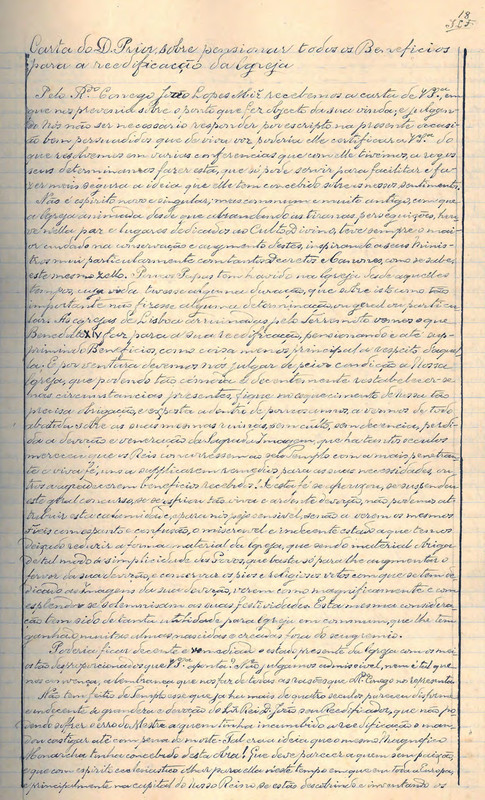 18
Carta do D. Prior, sobre pensionar todos os Beneficios
para a reedificação da Igreja
Pelo Rdo Conego João Lopes recebemos a carta de VSria, em
que nos prevenia sobre o ponto que fez objecto da sua vinda, e julgan-
do nós não ser necessario responder por escripto na presente occasi-
ão bem persuadidos que de viva voz poderia elle certificar a VSria do
que resolvemos em varias conferencias que com elle tivemos, a rogos
seus determinamos fazer esta, que só pode servir para facilitar e fa-
zer mais segura a ideia que elle tem concebido sobre os nosso sentimentos.
Não é espirito novo e singular, mas commum e muito antigo, com que
a Igreja animada desde que abrandando as tiranas perseguições, hou-
ve n'ella paz e lugares dedicados ao Culto Divino, teve sempre o mai-
or cuidado na conservação e augmento destes, inspirando a seus Minis-
tros mui particularmente com tantos Decretos e Canones, como se sabe,
este mesmo zello. Poucos Papas tem havido na Igreja desde aquelles
tempos, cuja vida tivesse alguma duração, que sobre isto como tão
importante não fizesse alguma determinação, ou geral ou particu-
lar. Nas Igrejas de Lisboa arruinadas pelo terremoto vemos o que
Benedicto XIV fez para a sua reedificação, pensionando e até su-
primindo Beneficios, como coisa menos principal a respeito daquel-
la. E por ventura devemos nós julgar de peior condição a Nossa
Igreja, que podendo tão cómoda e decentemente restabelecer-se
nas circumstancias presentes, fique no esquecimento de nossa tão
precisa obrigação, e exposta a dentro de poucos annos, a vermos de todo
abatida sobre as suas mesmas ruinas, sem culto, sem decencia, perdi-
da a devoção e veneração da Sagrada Imagem, que ha tantos seculos
mereceu que os Reis concorressem ao seu Templo com a mais penetran-
te e viva fé, uns a suplicarem remedios para as suas necessidades, ou-
tros a agradecerem beneficios recebidos! E está
este geral concurso, se se esfriou tão viva e ardente devoção, não podemos at-
tribuir esta calamidade, e para nós hoje sensivel, senão a verem os mesmos
fieis com espanto e confusão, o miseravel e indecente estado a que temos
deixado reduzir a forma material da Igreja, que sendo material obriga
de tal modo a simplicidade dos Povos, que basta só para lhe augmentar o
fervor da sua devoção, e conservar os pios e religiosos votos com que se tem de-
dicado ás Imagens da sua devoção, verem como magnificamente e com
esplendor se solemnisam as suas festividades. Esta mesma considera-
ção tem sido de tanta utilidade para Igreja em commum, que lhe tem
ganhado muitas almas nascidas e creadas fora do seu gremio.
Poderia ficar decente e remediado o estado presente da Igreja com os mei-
os tão desproporcionados que VSria aponta? Não julgamos admissivel, nem é tal que
nos convença, a lembrança que nos faz de todas as razões que o Rdo Conego nos representa.
Não tem feitio de Templo esse que já ha mais de quatro seculos pareceu disforme
e indecente á grandeza e devoção do Sr. Rei D. João seu Reedificador, que não po-
dendo soffrer o erro do Mestre a quem tinha incumbido a reedificação o man-
dou castigar até com pena de morte. Tal era a ideia que o mesmo Magnifico
Monarcha tinha concebido desta obra! Que deve parecer a quem sem paixão,
e que com espirito ecclesiastico olhar para ella n'este tempo em que em toda a Europa,
e principalmente na capital do nosso Reino se estão destruindo e inventando os